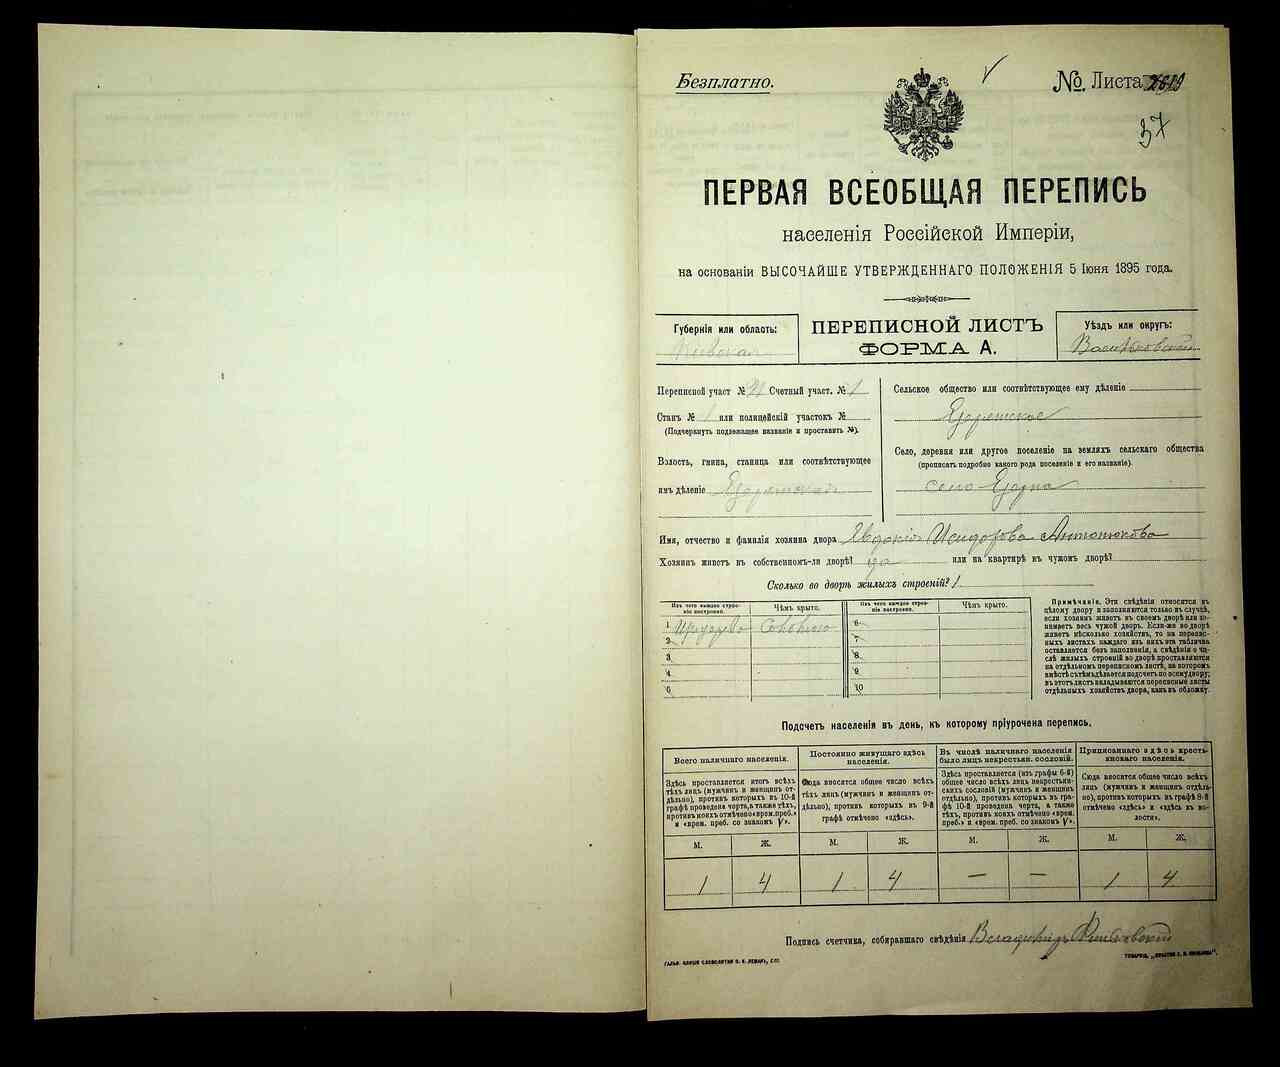 Безплатно.
№ Листа
37
ПЕРВАЯ ВСЕОБЩАЯ ПЕРЕПИСЬ
населенія Россійской Имперіи,
на основаніи ВЫСОЧАЙШЕ УТВЕРЖДЕННАГО ПОЛОЖЕНІЯ 5 Іюня 1895 года.
Губернія или область:
Кіевская
ПЕРЕПИСНОЙ ЛИСТЪ
ФОРМА А.
Уѣздъ или округъ:
Васильковскій
Переписной участ № Счетный участ. № 1
Станъ № 1 или полицейскій участокъ №
(Подчеркнуть подлежащее названіе и проставить №).
Волость, гмина, станица или соотвѣтствующее
имъ дѣленіе
Сельское общество или соотвѣтствующее ему дѣленіе
Село, деревня или другое поселеніе на земляхъ сельскаго общества
(прописать подробно какого рода поселеніе и его названіе).
село
Имя, отчество и фамилія хозяина двора Явдокія Исидорова Антонюкова
Хозяинъ живетъ въ собственномъ-ли дворѣ? да или на квартирѣ въ чужомъ дворѣ?
Сколько во дворѣ жилыхъ строеній? 1
Изъ чего каждое строеніе построено.
Чѣмъ крыто.
Изъ чего каждое строеніе построено.
Чѣмъ крыто.
1 Соломою
2
3
4
5
6
7
8
9
10
Примѣчаніе. Эти свѣдѣнія относятся къ
цѣлому двору и заполняются только въ случаѣ,
если хозяинъ живетъ въ своемъ дворѣ или занимаетъ весь чужой дворъ. Если-же во дворѣ
живетъ нѣсколько хозяйствъ, то на переписныхъ листахъ каждаго изъ нихъ эта табличка
оставляется безъ заполненія, а свѣдѣнія о числѣ жилыхъ строеній во дворѣ проставляются
на отдѣльномъ переписномъ листѣ, на которомъ
вмѣстѣ съ тѣмъ дѣлается подсчетъ по всему двору;
въ этотъ листъ вкладываются переписные листы
отдѣльныхъ хозяйствъ двора, какъ въ обложку.
Подсчетъ населенія въ день, къ которому пріурочена перепись.
Всего наличнаго населенія.
Здѣсь проставляется итогъ всѣхъ
тѣхъ лицъ (мужчинъ и женщинъ отдѣльно), противъ которыхъ въ 10-й
графѣ проведена черта, а также тѣхъ,
противъ коихъ отмѣчено «врем. преб.»
и «врем. преб. со знакомъ V».
Постоянно живущаго здѣсь
населенія.
Сюда вносится общее число всѣхъ
тѣхъ лицъ (мужчинъ и женщинъ отдѣльно), противъ которыхъ въ 9-й
графѣ отмѣчено «здѣсь».
Въ числѣ наличнаго населенія
было лицъ некрестьян. сословій.
Здѣсь проставляется (изъ графы 6-й)
общее число всѣхъ лицъ некрестьянскихъ сословій (мужчинъ и женщинъ
отдѣльно), противъ которыхъ въ графѣ 10-й проведена черта, а также
тѣхъ, противъ коихъ отмѣчено «врем.
преб.» и «врем. преб. со знакомъ V».
Приписаннаго здѣсь крестьянскаго населенія.
Сюда вносится общее число всѣхъ
лицъ (мужчинъ и женщинъ отдѣльно), противъ которыхъ въ графѣ 8-й
отмѣчено «здѣсь» и «здѣсь въ волости».
М. Ж. М. Ж. М. Ж. М. Ж.
1 4 1 4 — — 1 4
Подпись счетчика, собиравшаго свѣдѣнія Владиміръ